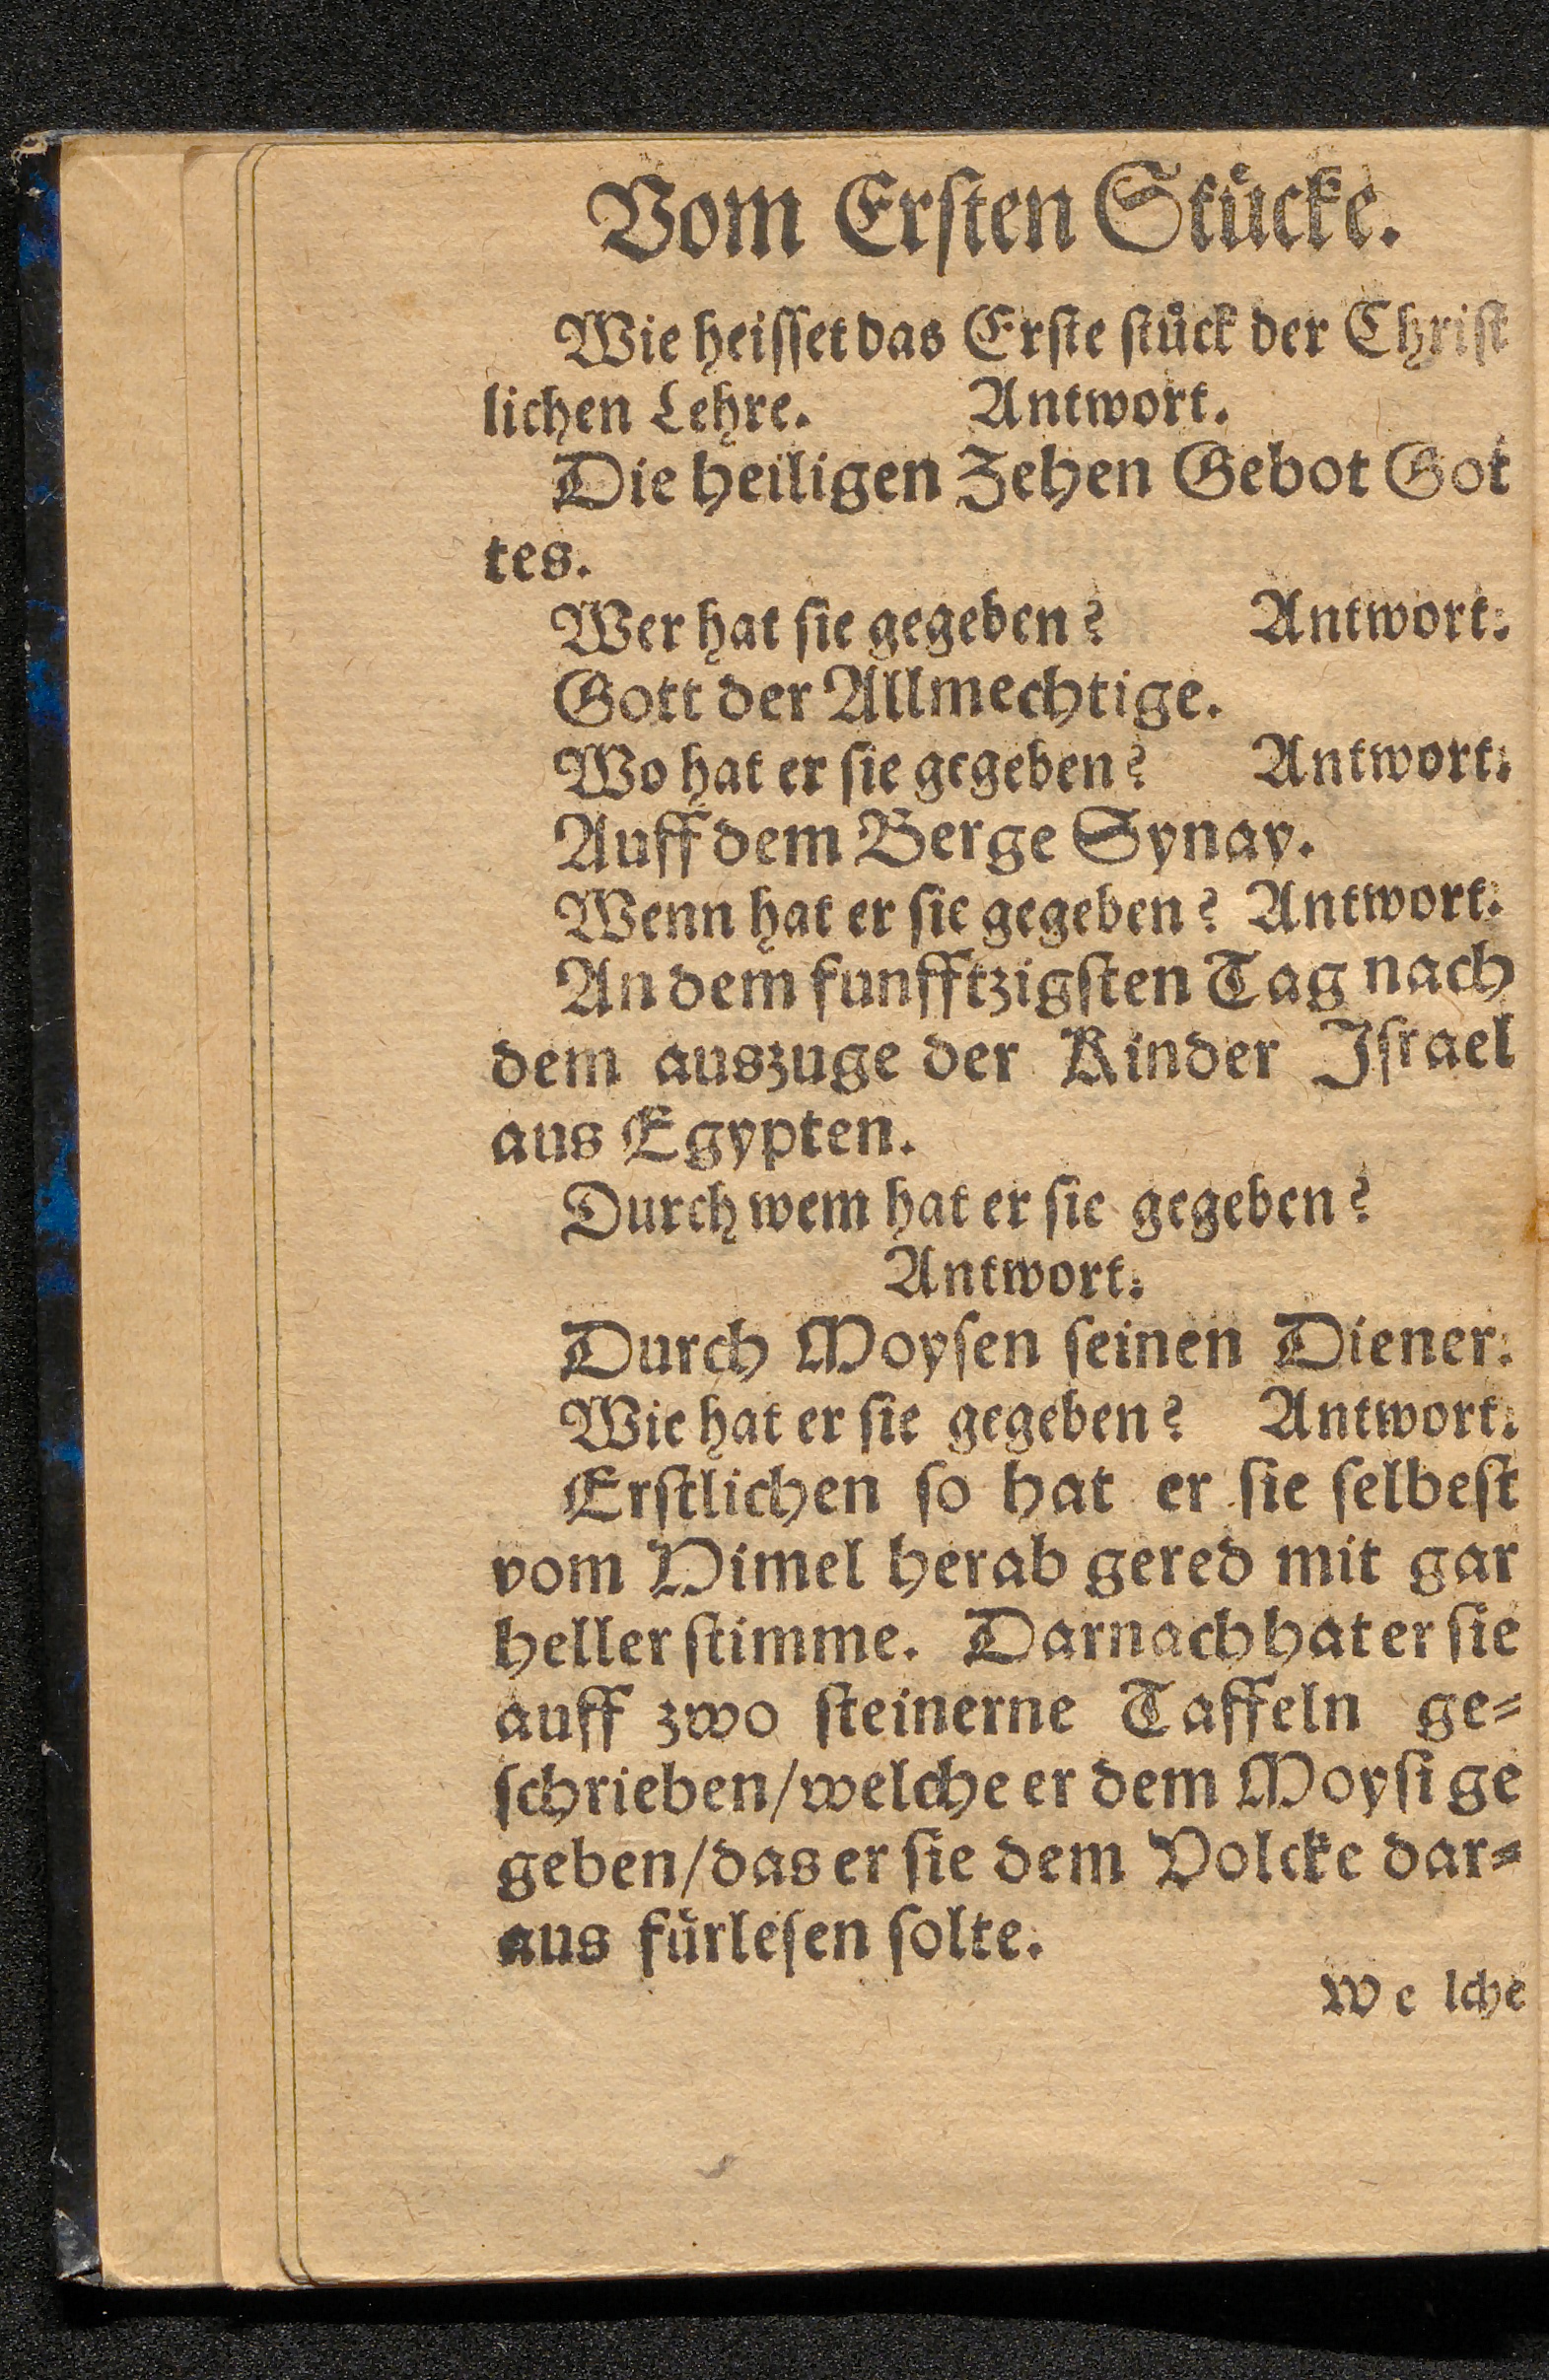 Vom Erſten Stuͤcke.
Wie heiſſet das Erſte ſtuͤck der Chriſt
lichen Lehre. Antwort.
Die heiligen Zehen Gebot Got
tes.
Wer hat ſie gegeben? Antwort:
Gott der Allmechtige.
Wo hat er ſie gegeben? Antwort:
Auff dem Berge Synay.
Wenn hat er ſie gegeben? Antwort:
An dem funfftzigſten Tag nach
dem auszuge der Kinder Iſrael
aus Egypten.
Durch wem hat er ſie gegeben?
Antwort:
Durch Moyſen ſeinen Diener:
Wie hat er ſie gegeben? Antwort.
Erſtlichen ſo hat er ſie ſelbeſt
vom Himel herab gered mit gar
heller ſtimme. Darnach hat er ſie
auff zwo ſteinerne Taffeln ge⸗
ſchrieben/welche er dem Moyſi ge
geben/das er ſie dem Volcke dar⸗
aus fuͤrleſen ſolte.
We lche